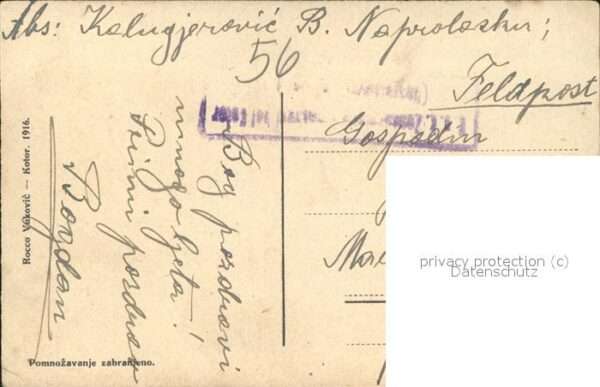 Abs: Kalugjerović B. Naprolasku;
56
Feldpost
Gospodin
Bog pozdravi
mnogo ljeta!
Primi pozdrav
Bogdan
Rocco Vuković — Kotor. 1916.
Pomnožavanje zabranjeno.
privacy protection (c)
Datenschutz